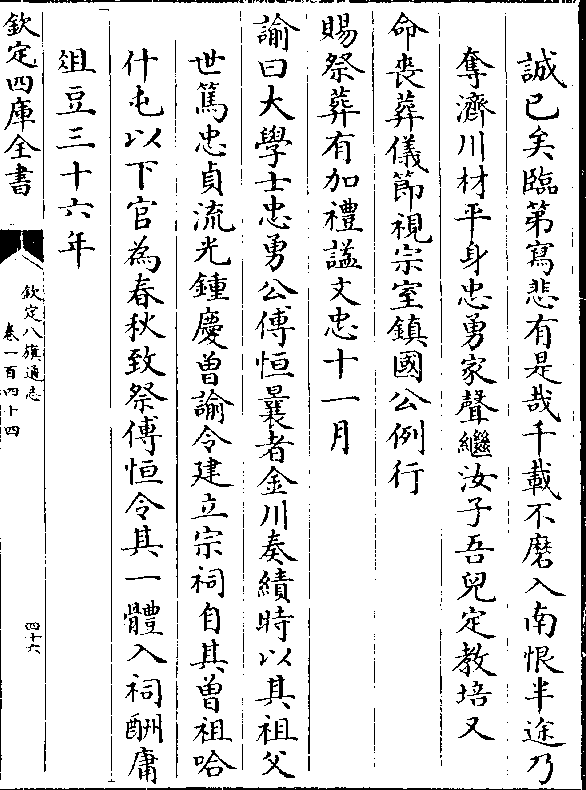 誠已矣臨第寫悲有是哉千載不磨入南恨半途乃
奪濟川材平身忠勇家聲繼汝子吾兒定教培又
命喪葬儀節視宗室鎮國公例行
賜祭葬有加禮諡文忠十一月
諭曰大學士忠勇公傅恒曩者金川奏績時以其祖父
世篤忠貞流光鍾慶曾諭令建立宗祠自其曾祖哈
什屯以下官為春秋致祭傅恒令其一體入祠酬庸
俎豆三十六年
欽定四庫全書
欽定八旗通志
卷一百四十四
四十六